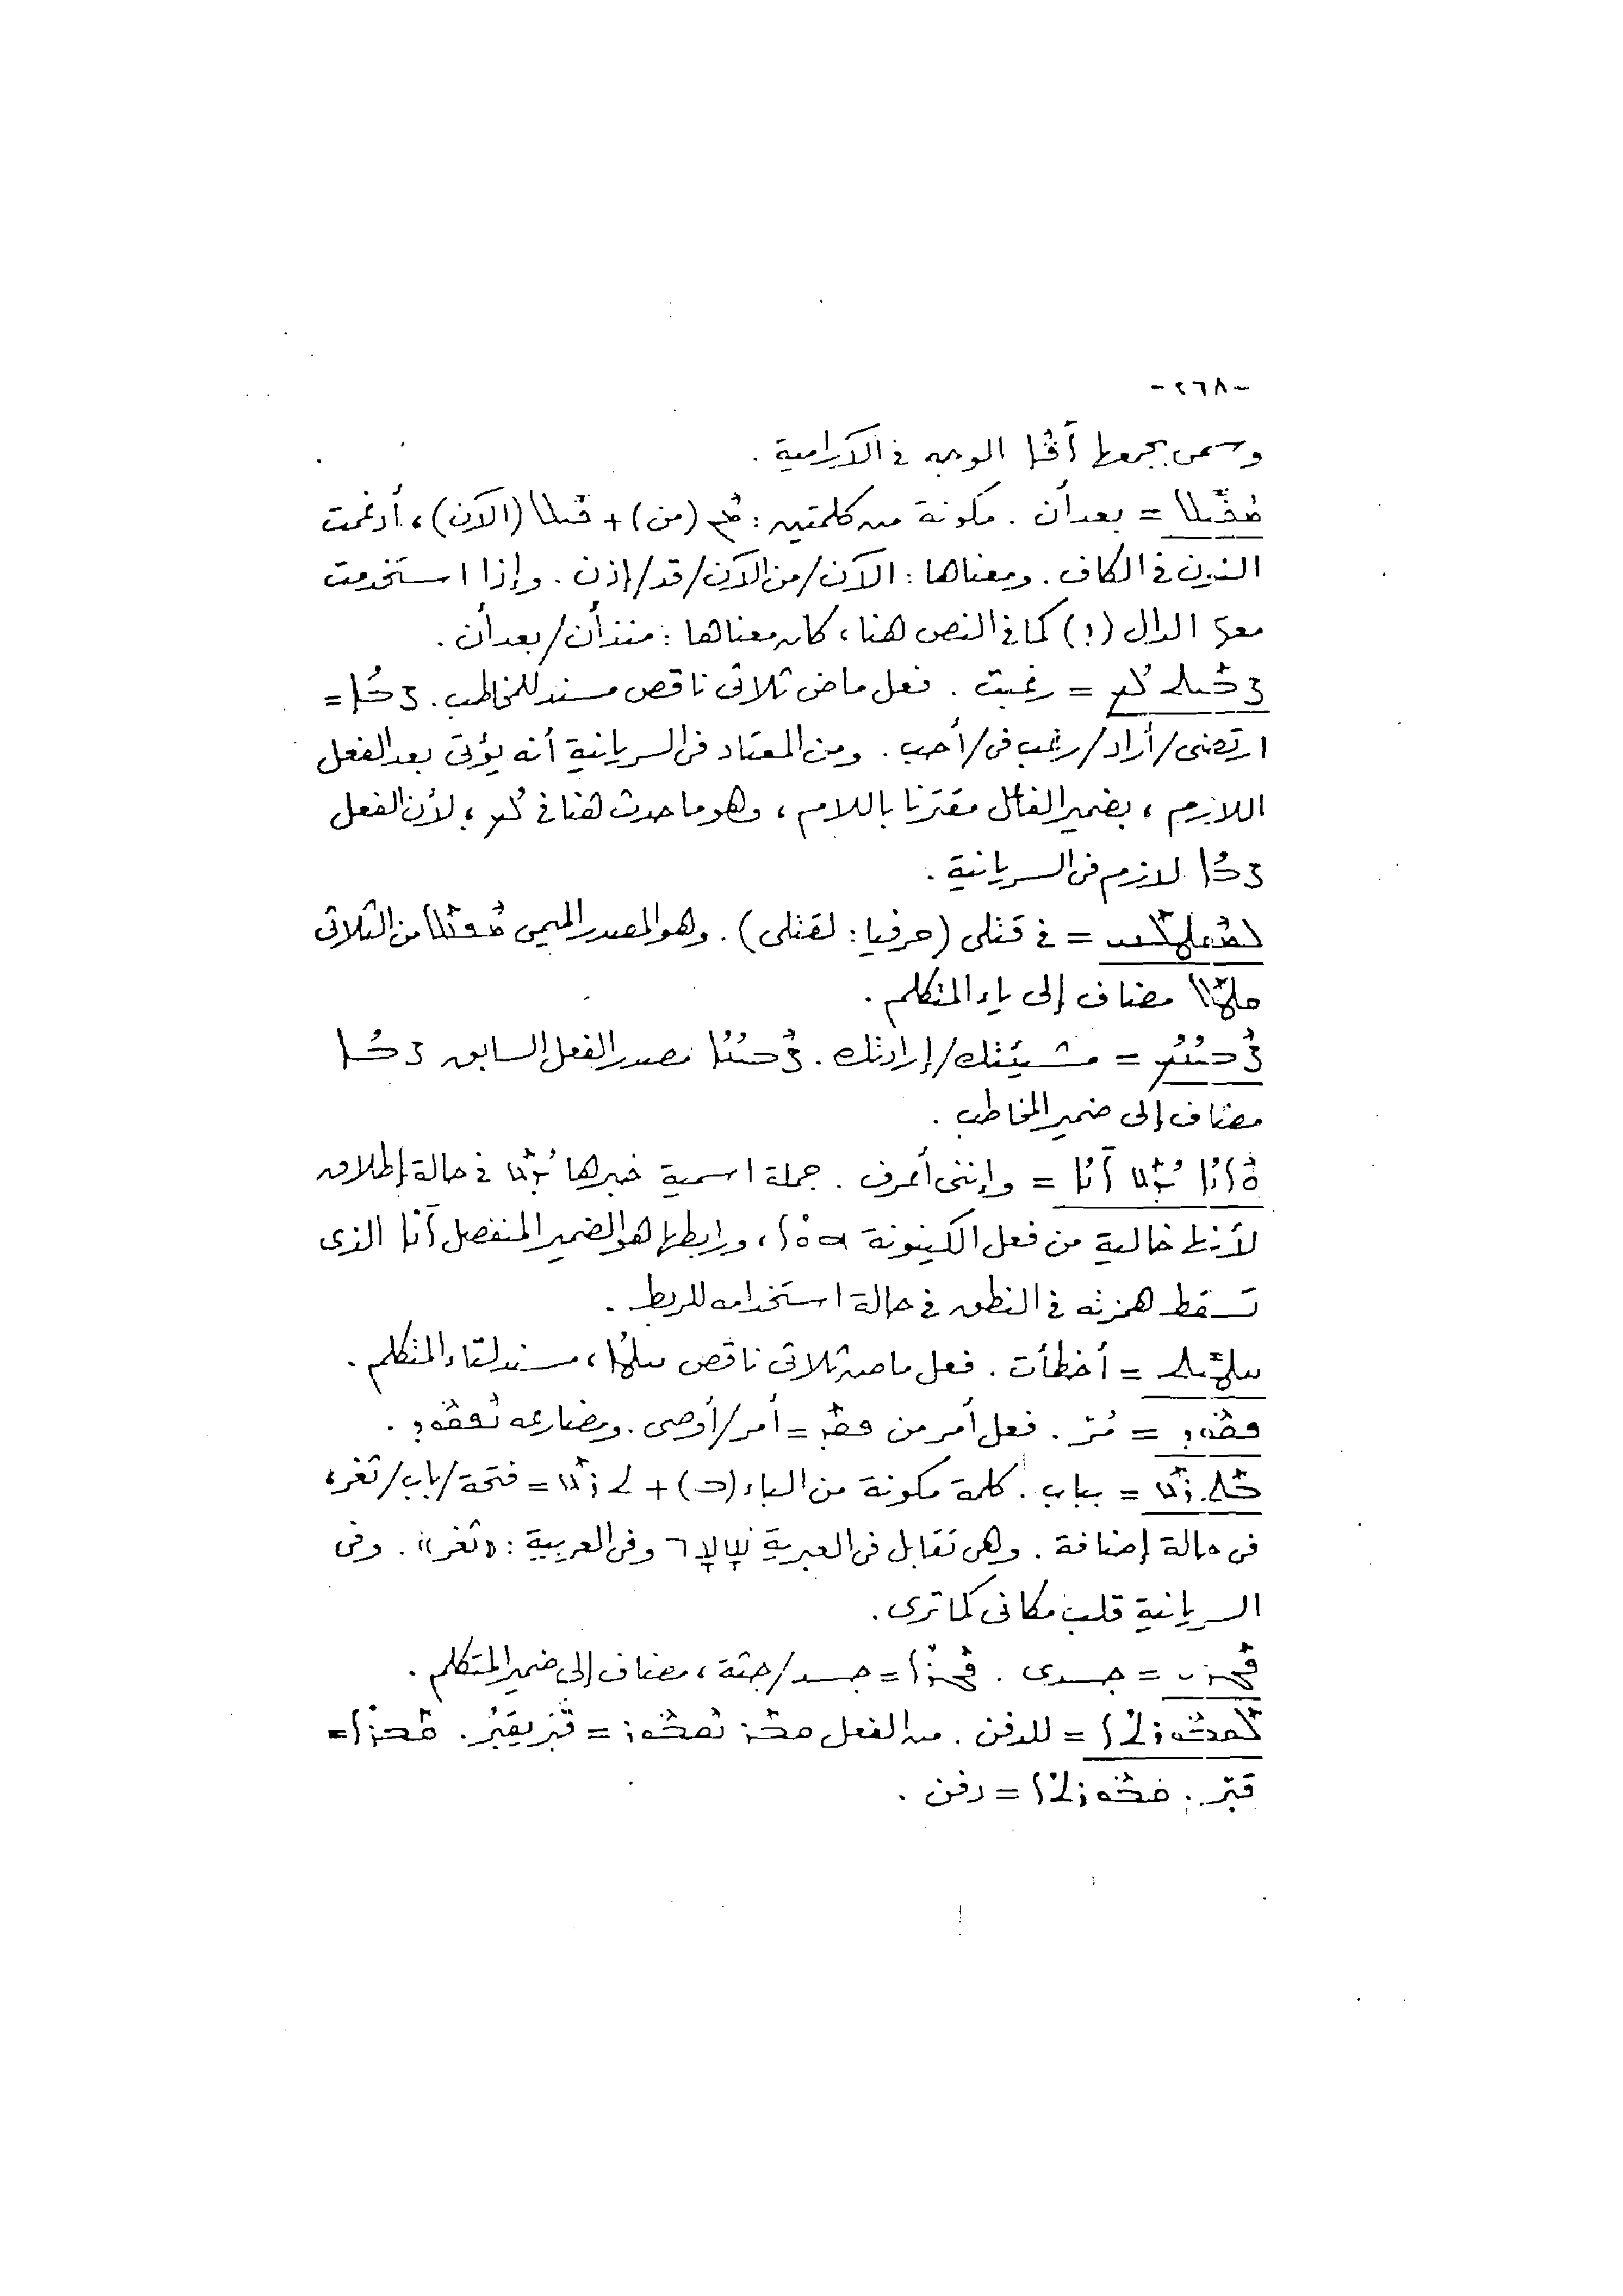 -٢٦٨-
وسمى بجمعها ܐܦ̈ܐ الوجه فى الآرامية .
ܡܟܝܠ = بعد أن . مكونة من كلمتين : ܡܢ (من) + (الآن) ، أدغمت
النون فى الكاف . ومعناها : الآن/من الآن/قد/إذن . وإذا استخدمت
معها الدال (ܕ) كما فى النص هنا ، كان معناها : منذ أن/بعد أن .
ܨܒܝܬ ܠܟ = رغبت . فعل ماض ثلاثى ناقص مسند للمخاطب . ܨܒܐ =
ارتضى/أراد/رغب فى/أحب . ومن المعتاد فى السريانية أنه يؤتى بعد الفعل
اللازم ، بضمير الفاعل مقترنا باللام ، وهو ما حدث هنا فى ܠܟ ، لأن الفعل
ܨܒܐ لازم فى السريانية .
ܠܡܩܛܠܝ = فى قتلى (حرفيا : لقتلى) . وهو المصدر الميمى من الثلاثى
ܩܛܠ مضاف إلى ياء المتكلم .
ܨܒܝܢܟ = مشيئتك/إرادتك . ܨܒܝܢܐ مصدر الفعل السابق ܨܒܐ
مضاف إلى ضمير المخاطب .
ܘܐܢܐ ܝܕܥ ܐܢܐ = وإننى أعرف . جملة اسمية خبرها ܝܕܥ فى حالة إطلاق
لأنها خالية من فعل الكينونة ܗܘܐ ، ورابطها هو الضمير المنفصل ܐܢܐ الذى
تسقط همزته فى النطق فى حالة استخدامه للربط .
ܚܛܝܬ = أخطأت . فعل ماض ثلاثى ناقص ܚܛܐ ، مسند لتاء المتكلم .
ܦܩܘܕ = مُرْ . فعل أمر من ܦܩܕ = أمر/أوصى . ومضارعه ܢܦܩܘܕ .
ܒܬܪܥ = بباب . كلمة مكونة من الباء (ܒ) + ܬܪܥ = فتحة/باب/ثغر ،
فى حالة إضافة . وهى تقابل فى العبرية שַׁעַר وفى العربية : «ثغر» . وفى
السريانية قلب مكانى كما ترى .
ܦܓܪܝ = جسدى . ܦܓܪܐ = جسد/جثة ، مضاف إلى ضمير المتكلم .
ܠܩܒܘܪܬܐ = للدفن . من الفعل ܩܒܪ ܢܩܒܘܪ = قَبَرَ يقبُر . ܩܒܪܐ =
قبر . ܩܒܘܪܬܐ = دفن .